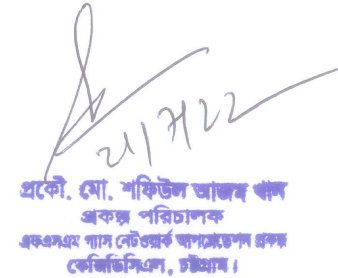 প্রকৌ. মো. শফিউল আজম খান
প্রকল্প পরিচালক
এফএসএম গ্যাস নেটওয়ার্ক আপগ্রেডেশন প্রকল্প
কেজিডিসিএল, চট্টগ্রাম।